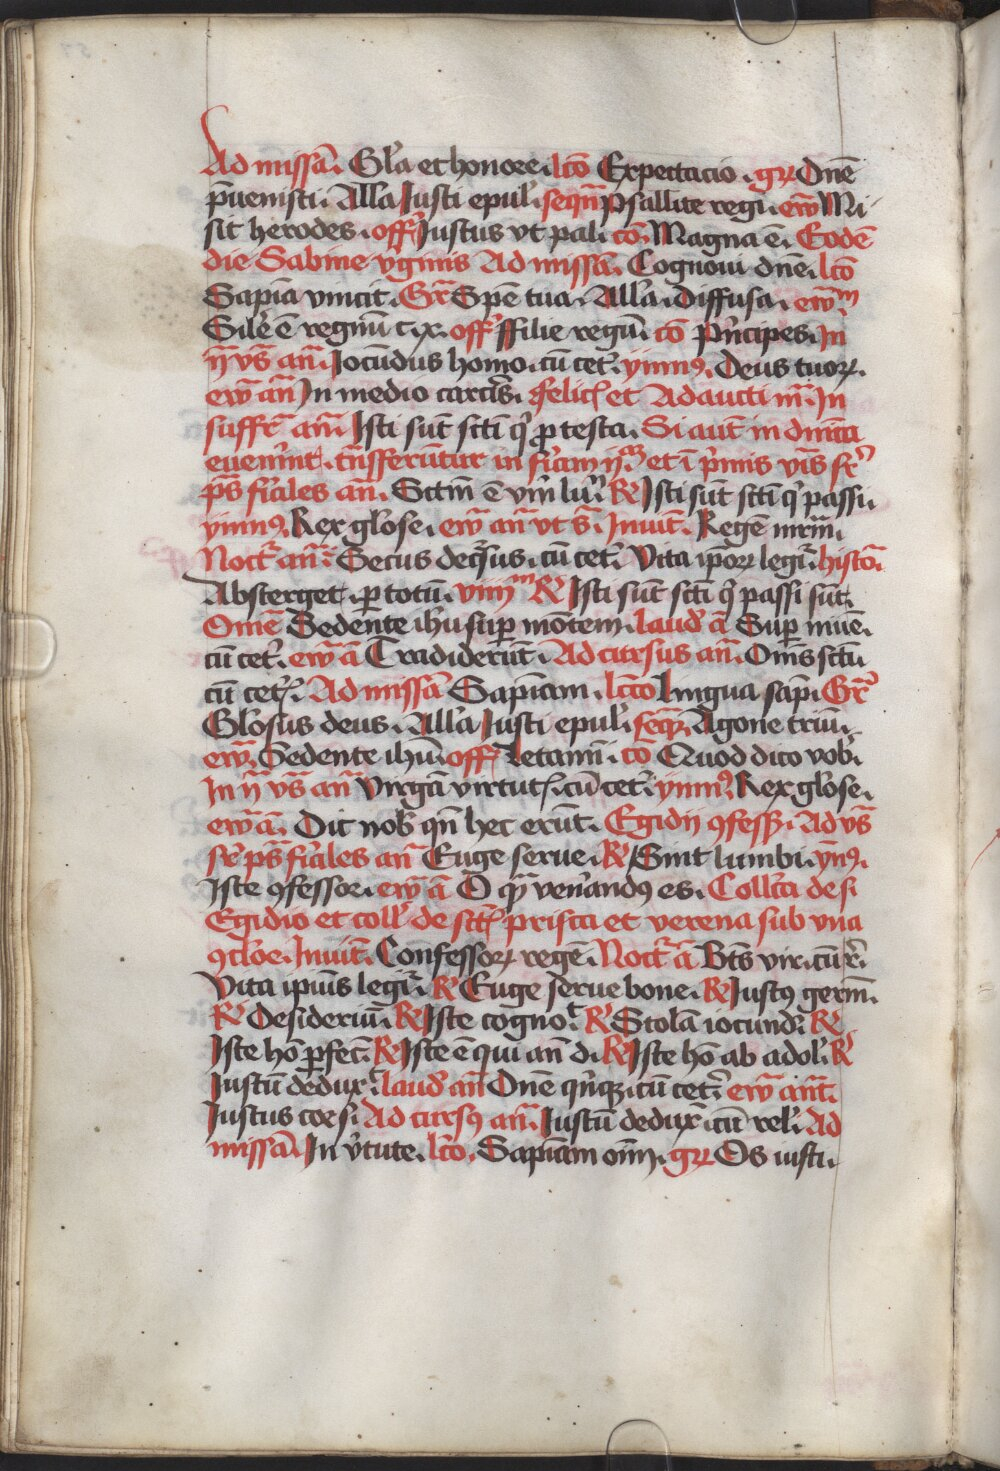 Ad missā. Gl'a et honore. lcō Expectacio. gr̄ Dnē
p̄uenisti. Alla Iusti epul'. sequā Psallite regi. ew̄ Mi
sit herodes. off̄ Iustus vt pal. cō. Magna ē. Eodē
die Sabine v'ginis Ad missā. Cognoui dnē. lcō
Sapīa vincit. Gr̄ Spē tua. Alla. Diffusa. ew̄m
Sile' ē regnū c. x. off̄ ffilie regū. cō Pn'cipes. In
ij vs̄ an̄. Jocūdus homo. cū cet'. ymn9. Deus tuorꝝ.
ew̄ an̄ In medio carcīs. ffelicis et Adaucti m̄. In
suffr̄ an̄. Isti sūt scti q' ꝓ testa. Si aūt in dn̄ica
euen'int. tn̄sferuntur in f'iam ij am et ī p'mis vīs s'
ps̄ f'iales an̄. Sctm̄ ē vm̄ lu'. R' Isti sūt scti q' passi.
ymn9. Rex glōse. ew̄ an̄ vt s̄. Inuit̄. Regē mr̄m.
Noct' an̄. Secus decsus. cū cet'. Vita ip̄orꝝ legr̄. histō.
Absterget. ꝑ totū. viiij m R' Isti sūt scti q' passi sūt.
Omē Sedente ih'u suꝑ mōtem. laud' ā Suꝑ niuē.
cū cet'. ew̄ ā Tradiderūt. Ad cursus an̄. Om̄s scti
cū cet'. Ad missā Sapiam. lcto Lingua sap̄. Gr̄
Glōsus deus. Alla Iusti epul'. seq̄. Agone triū.
ew̄. Sedente ih'u. off̄ Letami. cō Quod dico vob'.
In ij vs̄ an̄ Virgā virtut'. cū cet'. ymn9. Rex glōse.
ew̄ ā. Dic nob' qn̄ hec erūt. Egidij 9fess'. Ad vs̄
s' ps̄ f'iales an̄ Euge serue. R' Sint lumbi. ȳn9.
Iste 9fessor. ew̄ ā O q̄ ven'and9 es. Collc̄a de si
Egidio et coll' de sct' prisca et verena sub vna
9cloe. Inuit̄. Confessorꝝ regē. Noct' ā Bt̄s vir. cū r'.
Vita ipīus legr̄. R' Euge serue bone. R' Iust9 germ̄.
R' Desideriū. R' Iste cogno'. R' Stolā iocūd'. R'
Iste hō ꝑfec̄. R' Iste ē qui an̄ d'. R' Iste hō ab adol'. R'
Iustū dedux'. laud' an̄ Dnē qn'qꝫ. cū cet'. ew̄ an̄t.
Iustus coes. Ad curs9 an̄. Iustū dedux'. cū rel'. Ad
missā. In v'tute. lcō. Sapiam om̄. gr̄ Os iusti.